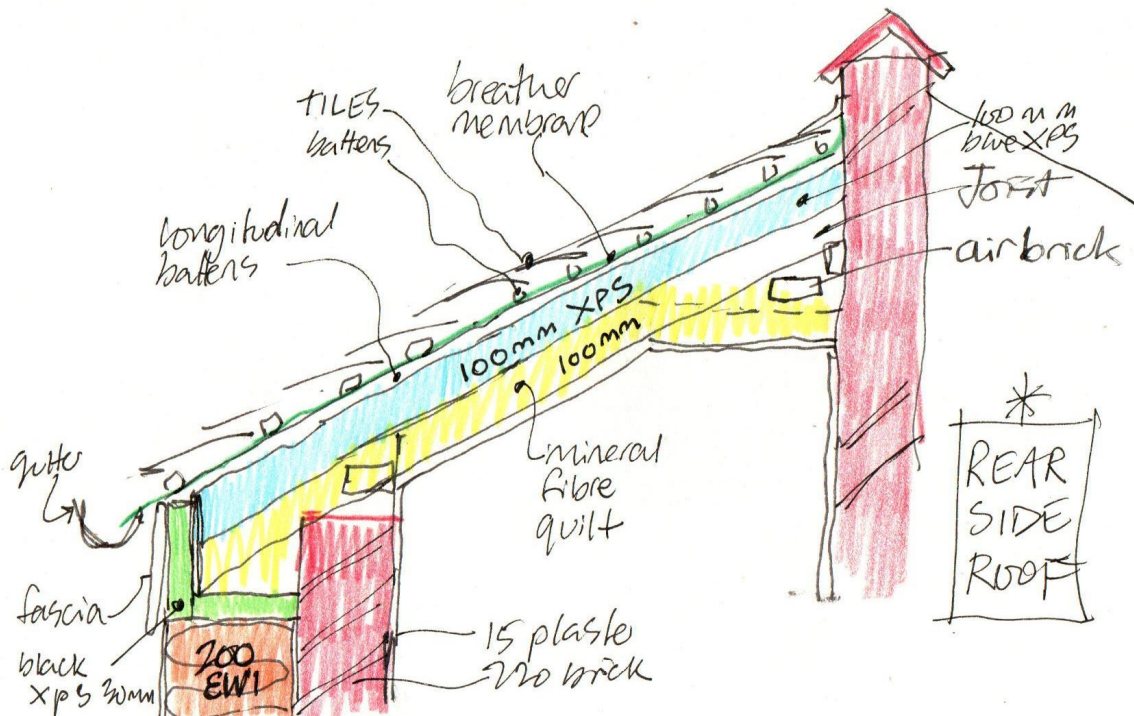 TILES
battens
breather
membrane
100mm
blue XPS
Joist
airbrick
longitudinal
battens
100mm XPS
100mm
mineral
fibre
quilt
gutter
fascia
black
XPS 30mm
200
EWI
15 plaste
220 brick
*
REAR
SIDE
ROOF